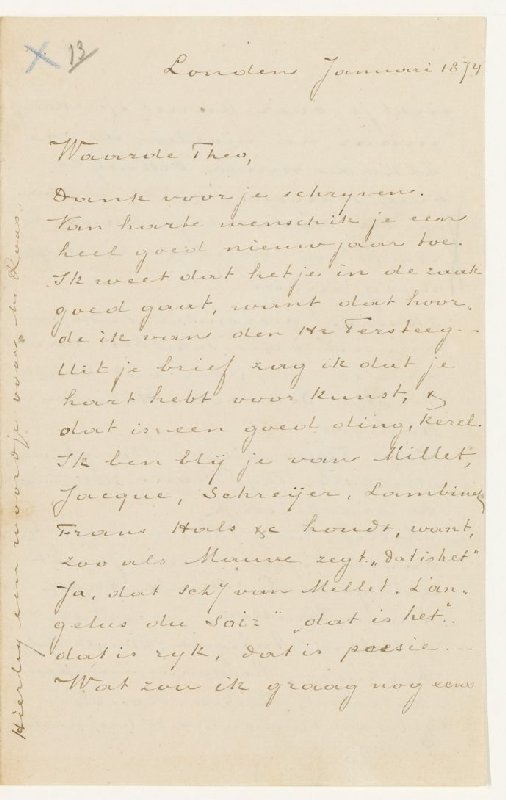 13
Londen Januari 1874
Waarde Theo,
Dank voor je schrijven.
Van harte wensch ik je een
heel goed nieuwjaar toe.
Ik weet dat het je in de zaak
goed gaat, want dat hoor-
de ik van den Hr Tersteeg.
Uit je brief zag ik dat je
hart hebt voor kunst, &
dat is een goed ding, kerel.
Ik ben blij je van Millet,
Jacque, Schreijer, Lambinet,
Frans Hals &c houdt, want,
zoo als Mauve zegt, „dat is het”
Ja, dat schij van Millet. L'an-
gelus du Soir” „dat is het”.
dat is rijk, dat is poesie.
Wat zou ik graag nog eens
Hierbij een woordje voor